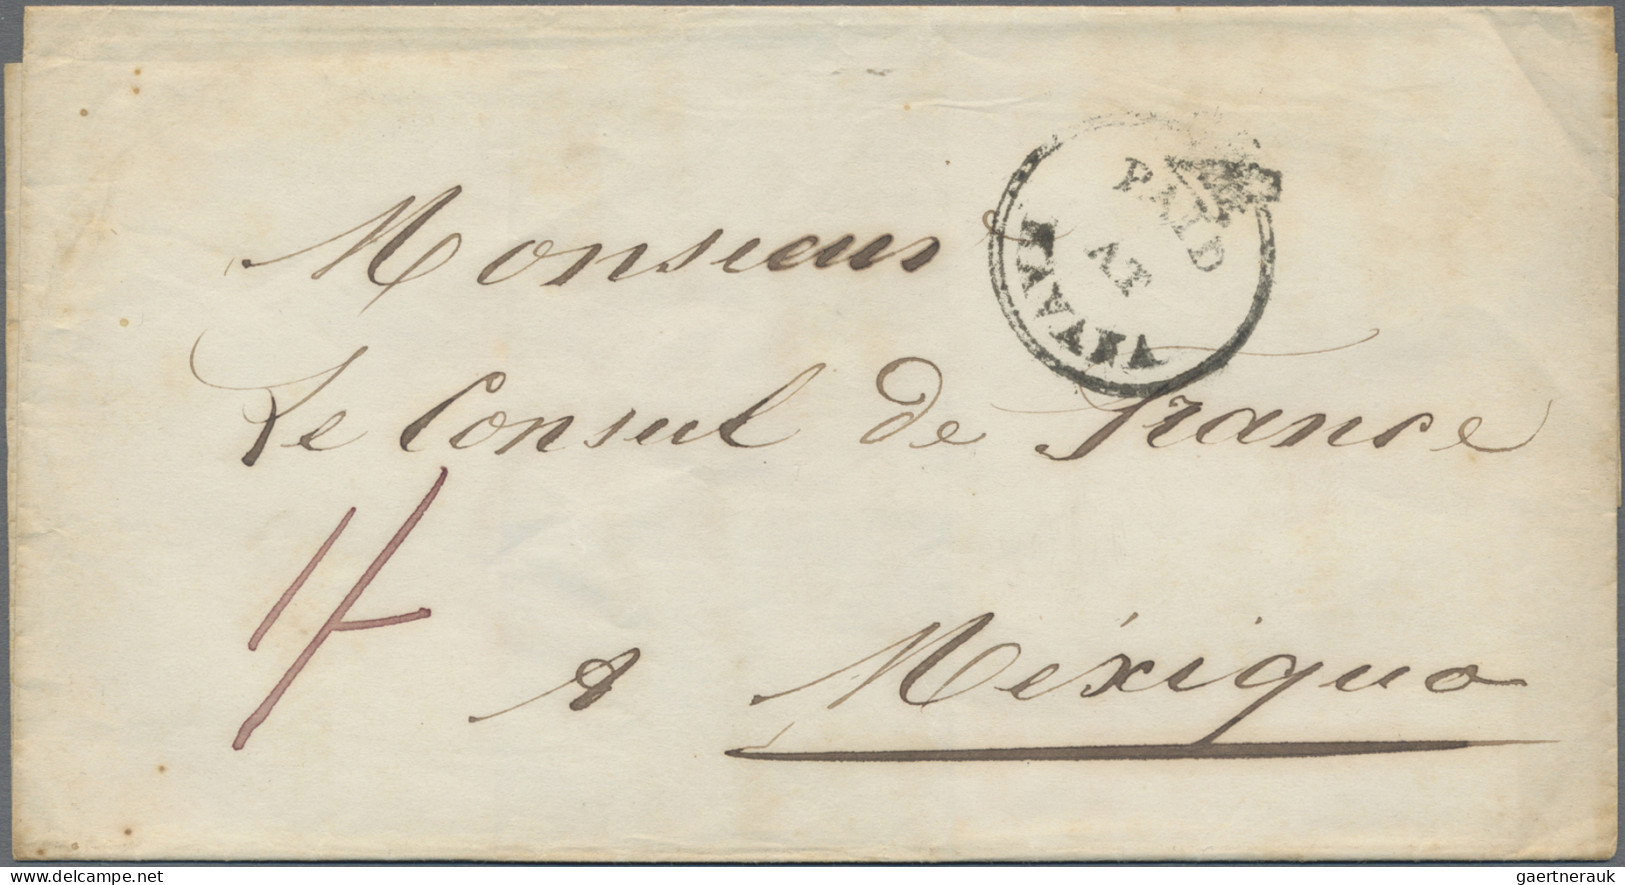 PAID
AT
HAVANA
Monsieur
Le Consul de France
1/
A Méxiquo
www.delcampe.net
gaertnerauk